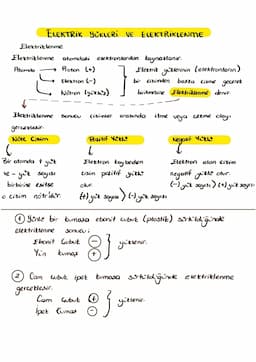 ELEKTRİK YÜKLERİ VE ELEKTRİKLENME
Elektriklenme
Elektriklenme atomdaki elektronlardan kaynaklanır.
Atomda Proton (+) Elektrik yüklerinin (elektronların)
Elektron (-) bir cisimden başka cisme geçmesi
Nötron (yüksüz) Elektriklenme denir.
Elektriklenme sonucu cisimler arasında itme veya çekme olayı
gerçekleşir.
Nötr Cisim
Bir atomda + yük
ve - yük sayısı
birbirine eşitse
o cisim nötrdür.
Pozitif Yüklü
Elektron kaybeden
cisim pozitif yüklü
olur.
(+) yük sayısı > (-) yük sayısı
Negatif Yüklü
Elektron alan cisim
negatif yüklü olur.
(-) yük sayısı > (+) yük sayısı
① Yünlü bir kumaşa ebonit çubuk (plastik) sürtüldüğünde
elektriklenme sonucu;
Ebonit Çubuk -
Yün kumaş +
yüklenir.
② Cam çubuk ipek kumaşa sürtüldüğünde elektriklenme
gerçekleşir.
Cam Çubuk +
İpek Kumaş -
yüklenir.